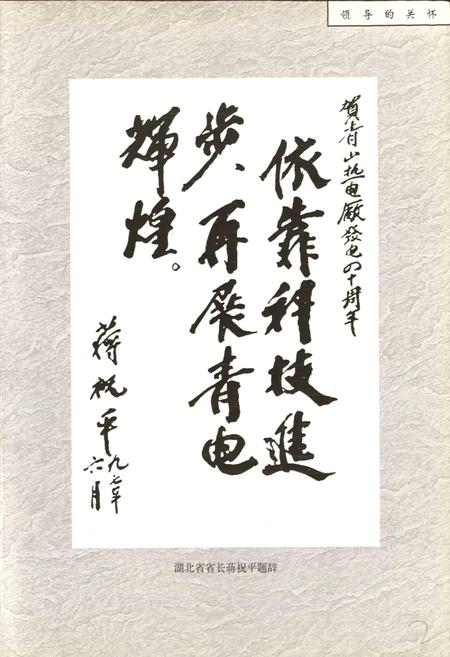 领导的关怀
賀青山热電厰發电四十周年
依靠科技進
步、再展青电
輝煌。
蒋祝平
九七年
六月
湖北省省长蒋祝平题辞
2